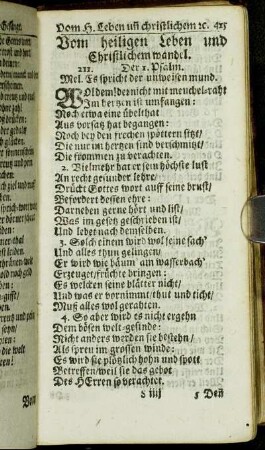 Vom H. Leben uñ christlichem ꝛc. 415
Vom heiligen Leben und
Christlichem wandel.
211. Der 1. Psalm.
Mel. Es spricht der unweisen mund.
WOldem! der nicht mit meuchel-raht
Im hertzen ist umfangen:
Noch etwa eine übelthat
Aus vorsatz hat begangen:
Noch bey den frechen spöttern sitzt/
Die nur im hertzen sind verschmitzt/
Die frommen zu verachten.
2. Vielmehr hat er sein höchste lust
An recht gesunder lehre/
Drückt Gottes wort auff seine brust/
Befordert dessen ehre:
Darneben gerne hört und list/
Was im gesetz geschrieben ist/
Und lebet nach demselben.
3. Solch einem wird wol seine sach'
Und alles thun gelingen/
Er wird wie bäum' am wasserbach'
Erzeuget/ früchte bringen:
Es welcken seine blätter nicht/
Und was er vornimmt/ thut und ticht/
Muß alles wol gerahten.
4. So aber wird es nicht ergehn
Dem bösen welt-gesinde:
Nicht anders werden sie bestehn/
Als spreu im grossen winde:
Es wird sie plötzlich hohn und spott
Betreffen/ weil sie das gebot
Des HErren so verachtet.
S iiij 5 Deñ